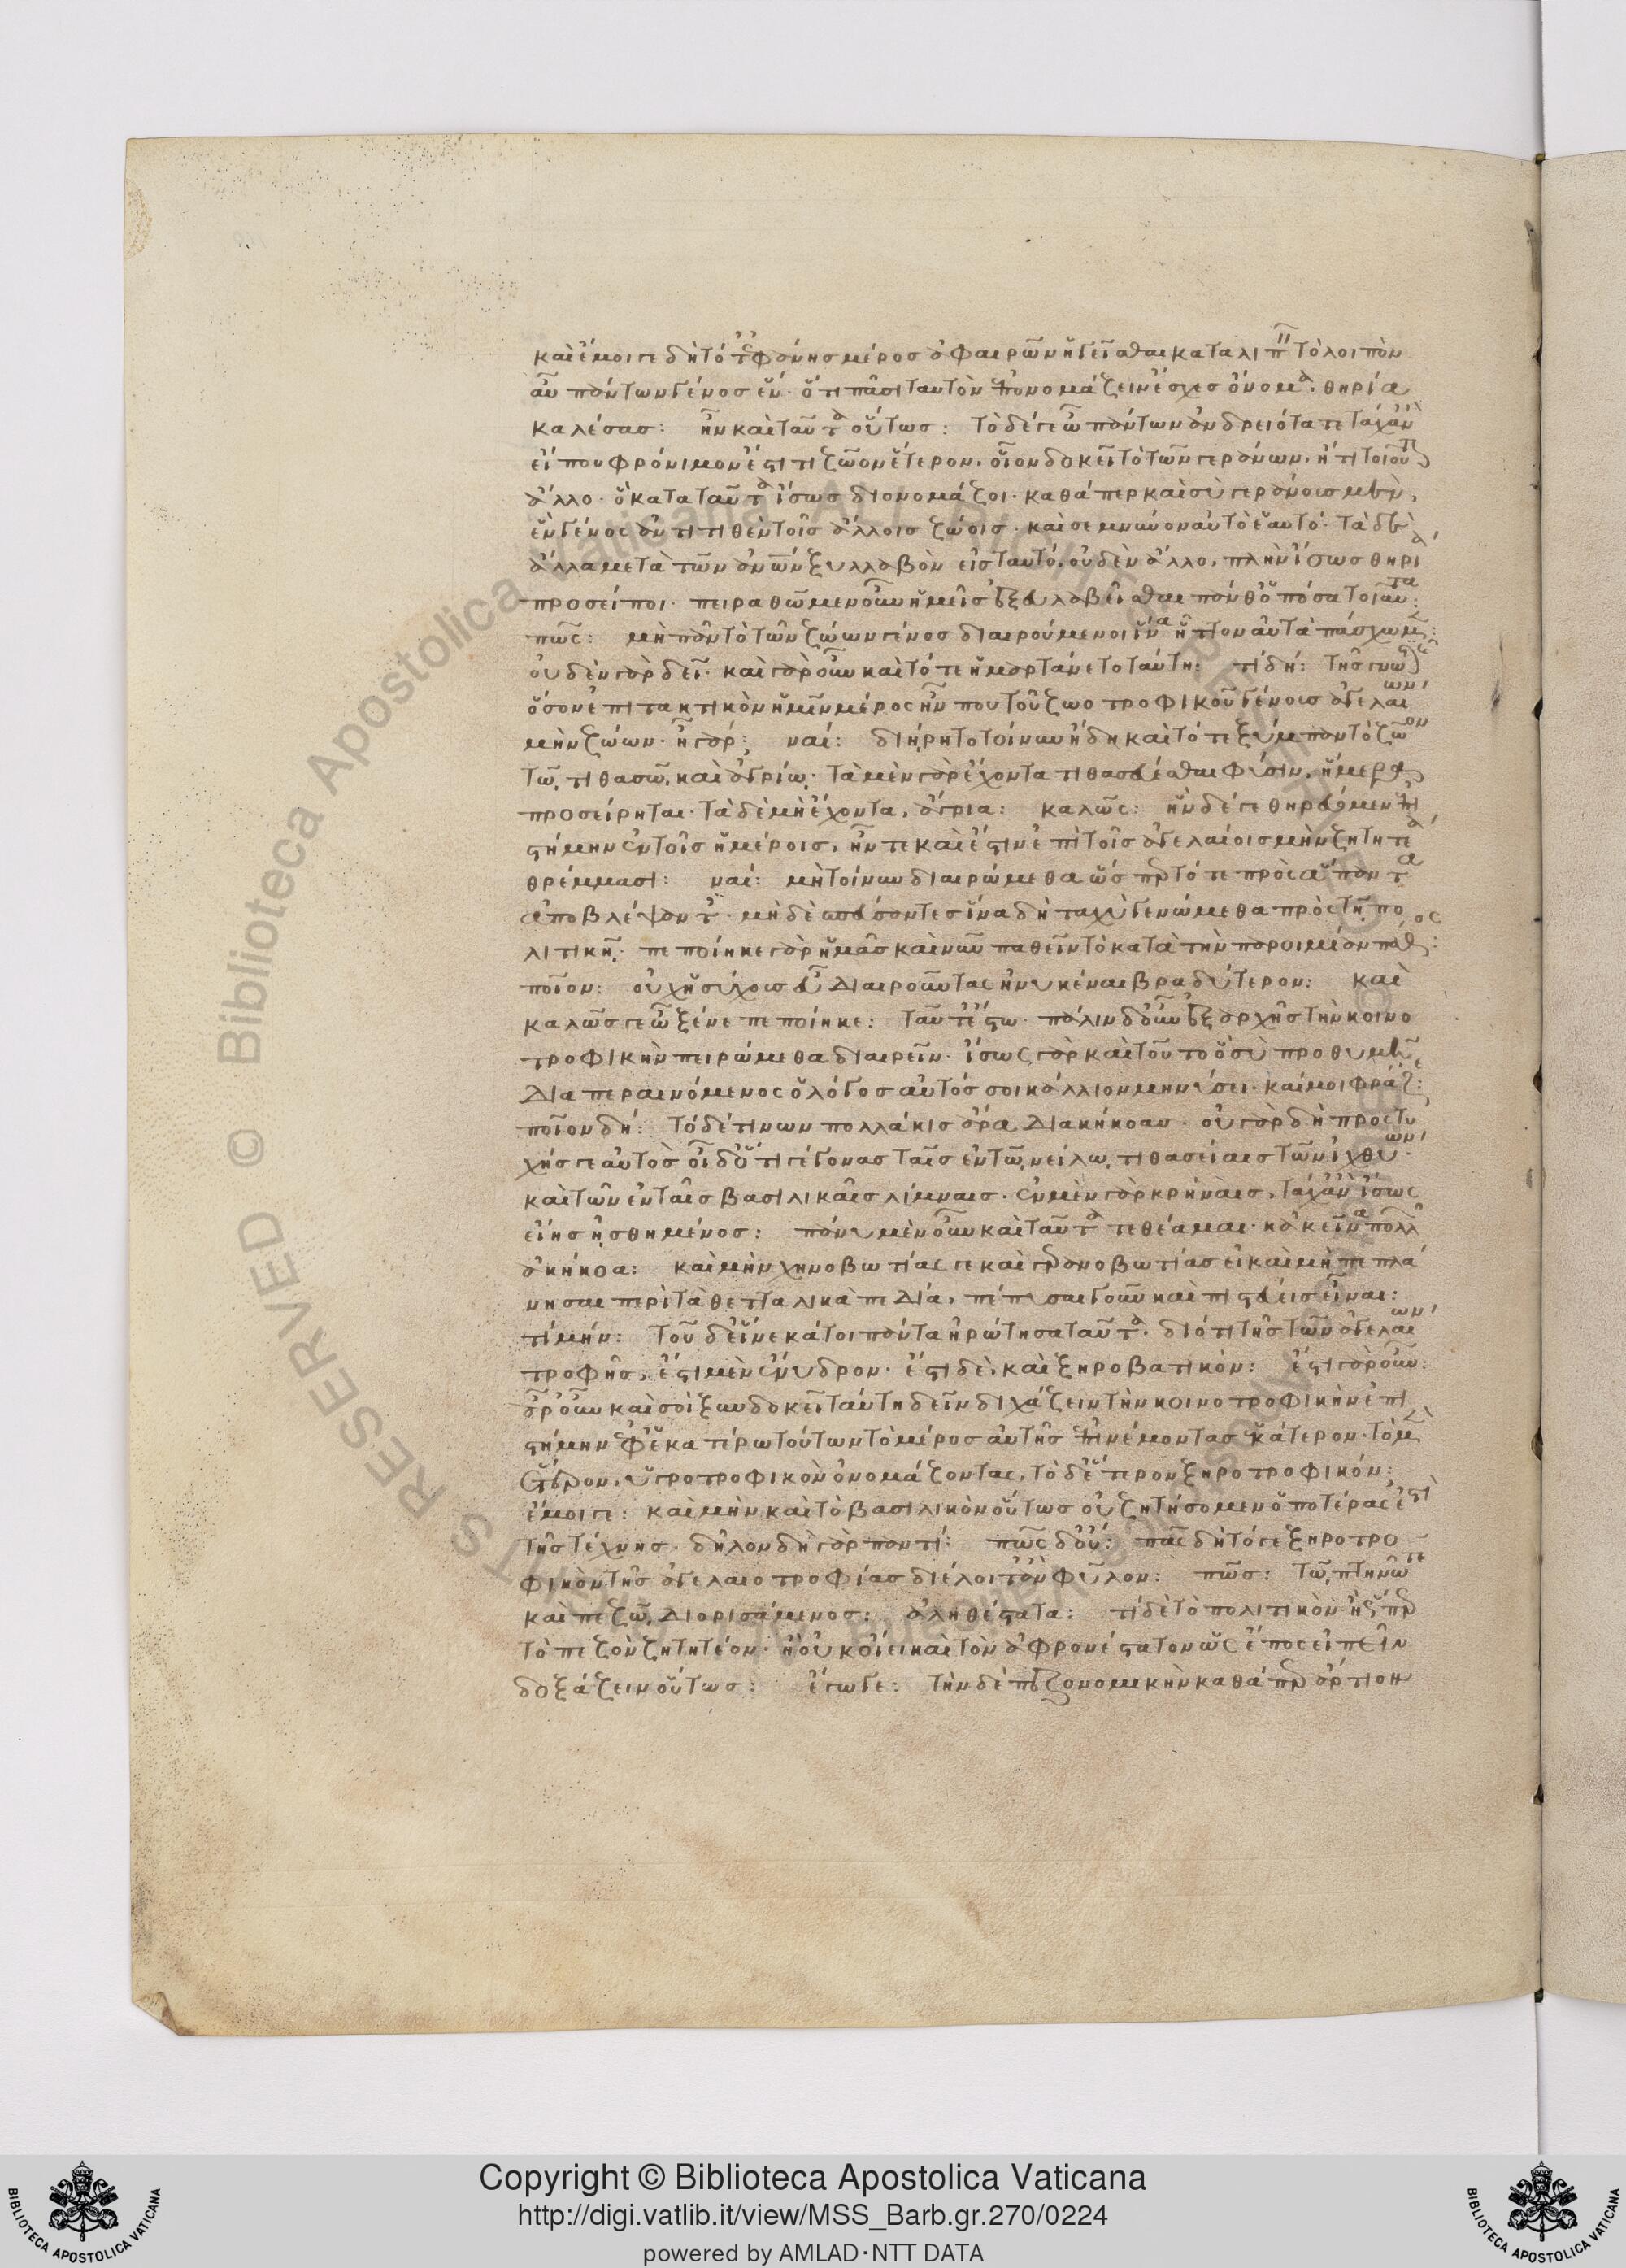 καὶ ἔμοιγε δὴ τότ' ἐφάνης μέρος ἀφαιρῶν ἡγεῖσθαι καταλιπεῖν τὸ λοιπὸν
αὖ πάντων γένος ἕν· ὅτι πᾶσι ταυτὸν ἐπονομάζειν ἔσχες ὄνομα. θηρία
καλέσας: ἦν καὶ ταῦτα οὕτως: τὸ δέ γε ὦ πάντων ἀνδρειότατε τάχ' ἂν
εἴ που φρόνιμον ἐστί τι ζῶον ἕτερον. οἷον δοκεῖ τὸ τῶν γεράνων. ἤ τι τοιοῦτον
ἄλλο· ὃ κατα ταῦτα ἴσως διονομάζοι· καθάπερ καὶ σὺ γεράνοις μὲν,
ἓν γένος ἀντιτιθὲν τοῖς ἄλλοις ζώοις· καὶ σεμνῦνον αὐτὸ ἑαυτό· τὰ δὲ
ἄλλα μετὰ τῶν ἀνων ξυλλαβὸν εἰς ταυτό, οὐδὲν ἄλλο, πλὴν ἴσως θηρία
προσείποι· πειραθῶμεν οὖν ἡμεῖς ἐξευλαβεῖσθαι πάνθ' ὁπόσα τοιαῦτα:
πῶς: μὴ πᾶν τὸ τῶν ζώων γένος διαιρούμενοι ἵνα ἧττον αὐτὰ πάσχωμεν:
οὐδὲν γὰρ δεῖ· καὶ γὰρ οὖν καὶ τότε ἡμαρτάνετο ταύτη: τί δή: τῆς γνωστικῆς
ὅσον ἐπιτακτικὸν ἡμῖν μέρος ἦν που τοῦ ζωοτροφικοῦ γένους ἀγελαίων
μὴν ζώων· ἦ γάρ; ναί: διήρητο τοίνυν ἤδη καὶ τότε ξύμπαν τὸ ζῶον
τῶ τιθασῶ, καὶ ἀγρίω· τὰ μὲν γὰρ ἔχοντα τιθασεύεσθαι φύσιν, ἥμερα
προσείρηται· τὰ δὲ μὴ ἔχοντα, ἄγρια: καλῶς: ἣν δέ γε θηρεύομεν ἐπι
στήμην ἐν τοῖς ἡμέροις, ἦν τε καὶ ἔστιν ἐπὶ τοῖς ἀγελαίοις μὴν ζητητέα
θρέμμασι: ναί: μὴ τοίνυν διαιρώμεθα ὥσπερ τότε πρὸς ἅπαντα
ἀποβλέψαντες· μὴ δὲ σπεύσαντες ἵνα δὴ ταχὺ γενώμεθα πρὸς τῆ πο
λιτικῆ· πεποίηκε γὰρ ἡμᾶς καὶ νῦν παθεῖν τὸ κατὰ τὴν παροιμίαν πάθος:
ποῖον: οὐχ ἡσύχους εὖ διαιροῦντας ἠνυκέναι βραδύτερον: καὶ
καλῶς γε ὦ ξένε πεποίηκε: ταῦτ' ἔστω· πάλιν δ' οὖν ἐξ ἀρχῆς τὴν κοινο
τροφικὴν πειρώμεθα διαιρεῖν· ἴσως γὰρ καὶ τοῦτο ὃ σὺ προθυμεῖ
διαπεραινόμενος ὁ λόγος αὐτός σοι κάλλιον μηνύσει· καί μοι φράζε:
ποῖον δή: τόδε τινων πολλάκις ἄρα διακήκοας· οὐ γὰρ δὴ προστυ
χής γε αὐτὸς οἶδ' ὅτι γέγονας ταῖς ἐν τῶ νείλω τιθασείαις τῶν ἰχθύων·
καὶ τῶν ἐν ταῖς βασιλικαῖς λίμναις· ἐν μὲν γὰρ κρήναις, τάχ' ἂν ἴσως
εἴης ἠσθημένος: πάνυ μὲν οὖν καὶ ταῦτα τεθέαμαι· κἀκεῖνα πολλῶν
ἀκήκοα: καὶ μὴν χηνοβωτίας γε καὶ γερανοβωτίας εἰ καὶ μὴ πεπλά
νησαι περὶ τὰ θετταλικὰ πεδία, πέπυσαι γοῦν καὶ πιστεύεις εἶναι:
τί μήν: τοῦ δ' ἕνεκά τοι πάντα ἠρώτησα ταῦτα· διότι τῆς τῶν ἀγελαίων
τροφῆς, ἔστι μὲν ἔνυδρον· ἔστι δὲ, καὶ ξηροβατικὸν: ἔστι γὰρ οὖν:
ἆρ' οὖν καὶ σοὶ ξυνδοκεῖ ταύτη δεῖν διχάζειν τὴν κοινοτροφικὴν ἐπι
στήμην ἐφ' ἑκατέρω τούτων τὸ μέρος αὐτῆς ἐπινέμοντας ἑκάτερον· τὸ μὲν
ἕτερον, ὑγροτροφικὸν ὀνομάζοντας, τὸ δ' ἕτερον ξηροτροφικόν:
ἔμοιγε: καὶ μὴν καὶ τὸ βασιλικὸν οὕτως οὐ ζητήσομεν ὁποτέρας ἐστὶ
τῆς τέχνης· δῆλον δὴ γὰρ παντί: πῶς δ' οὔ: πᾶς δὴ τό γε ξηροτρο
φικὸν τῆς ἀγελαιοτροφίας διέλοιτ' ἂν φῦλον: πῶς: τῶ πτηνῶ τε
καὶ πεζῶ διορισάμενος: ἀληθέστατα: τί δὲ τὸ πολιτικὸν ἦ περὶ
τὸ πεζὸν ζητητέον· ἢ οὐκ οἴει καὶ τὸν ἀφρονέστατον ὡς ἔπος εἰπεῖν
δοξάζειν οὕτως: ἔγωγε: τὴν δὲ πεζονομικὴν καθάπερ ἄρτιον
Copyright © Biblioteca Apostolica Vaticana
http://digi.vatlib.it/view/MSS_Barb.gr.270/0224
powered by AMLAD·NTT DATA